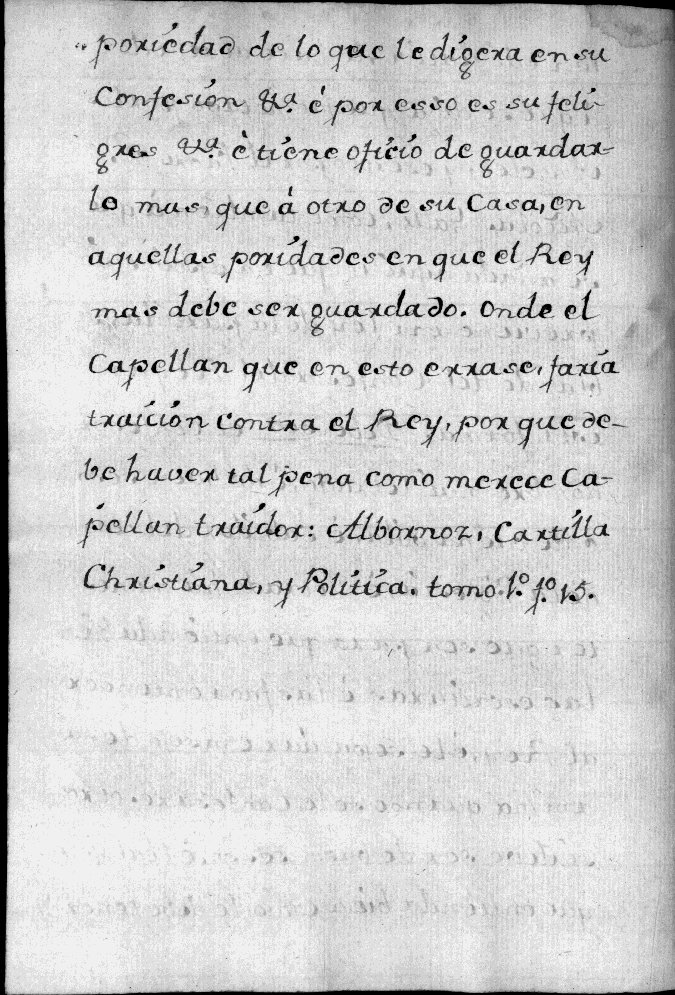 " poriédad de lo que le dígera en su
Confesíón &.ª é por esso es su felí-
gres &.ª è tíene ofício de guardar-
lo mas, que á otro de su Casa, en
áquellas porídades en que el Rey
mas debe ser guardado. Onde el
Capellan que en esto errase, faría
traícíón contra el Rey, por que de-
be haver tal pena como merece Ca-
pellan traídor: Albornoz, Cartílla
Chrístíana, y Polítíca. tomo 1.º f.º 15.